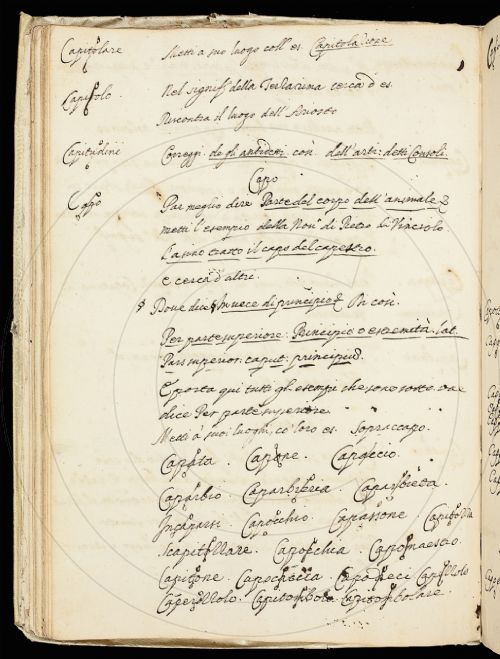 Capitolare Metti a suo luogo coll' es. Capitolazione
Capitolo. Nel signif. della Terzarima cerca d' es.
Riscontra il luogo dell' Ariosto
Capitudini Correggi. de gli antidetti con dell' arti: detti Consoli.
Capo
Capo Par meglio dire Parte del corpo dell' animale &
metti l' esempio della Nov. di Pietro di Vinciolo
L' asino tratto il capo del capestro.
e cerca d' altri.
§ Dove dice In vece di principio & Di così.
Per parte superiore. Principio o estremità. lat.
Pars superior: caput: principium.
E porta qui tutti gli esempi che sono sotto, ove
dice Per parte superiore.
Metti a' suoi luoghi, co' loro es. Sopraccapo.
Capata. Capone. Capoccio.
Caparbio Caparbieria. Caparbietà.
Incaparsi. Capocchio. Capassone.
Scapitozzare. Capocchia. Capomaestro.
Capitone. Capocaccia Capodieci
Capitombolo. Capitombolare.